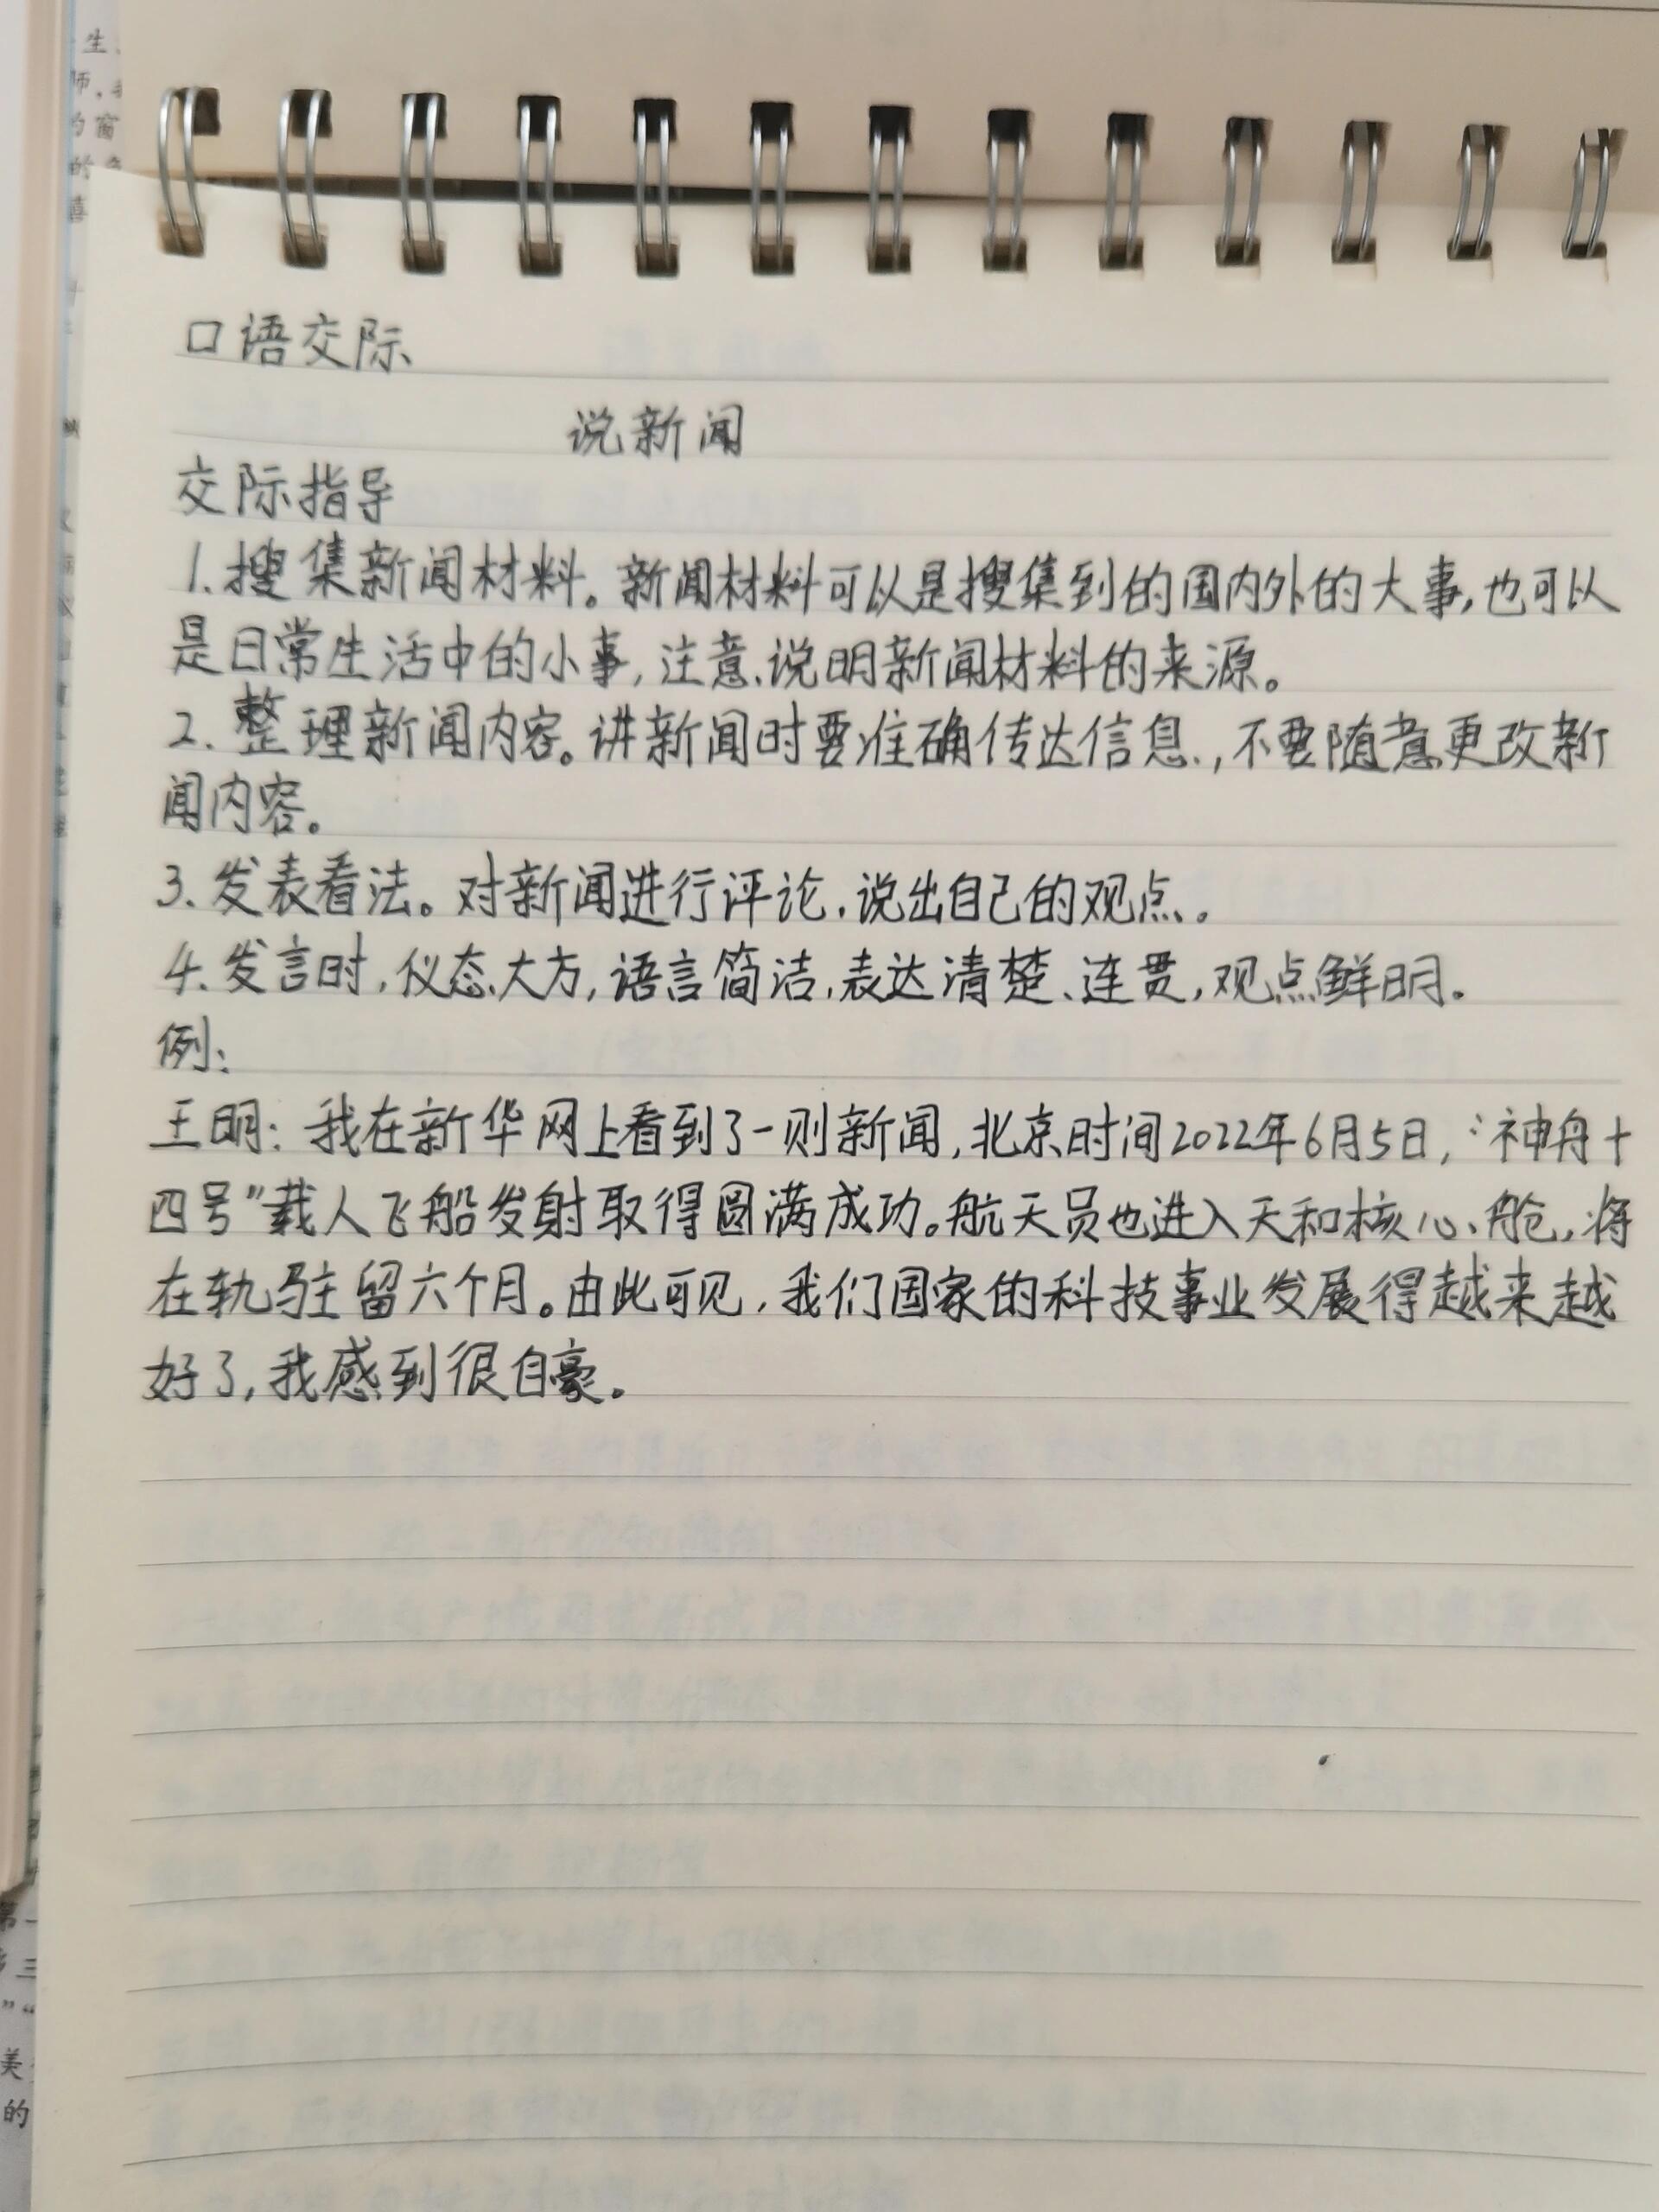 口语交际
说新闻
交际指导
1.搜集新闻材料。新闻材料可以是搜集到的国内外的大事,也可以
是日常生活中的小事,注意说明新闻材料的来源。
2.整理新闻内容。讲新闻时要准确传达信息,不要随意更改新
闻内容。
3.发表看法。对新闻进行评论,说出自己的观点。
4.发言时,仪态大方,语言简洁,表达清楚、连贯,观点鲜明。
例:
王明:我在新华网上看到了一则新闻,北京时间2022年6月5日,“神舟十
四号”载人飞船发射取得圆满成功。航天员也进入天和核心舱,将
在轨驻留六个月。由此可见,我们国家的科技事业发展得越来越
好了,我感到很自豪。